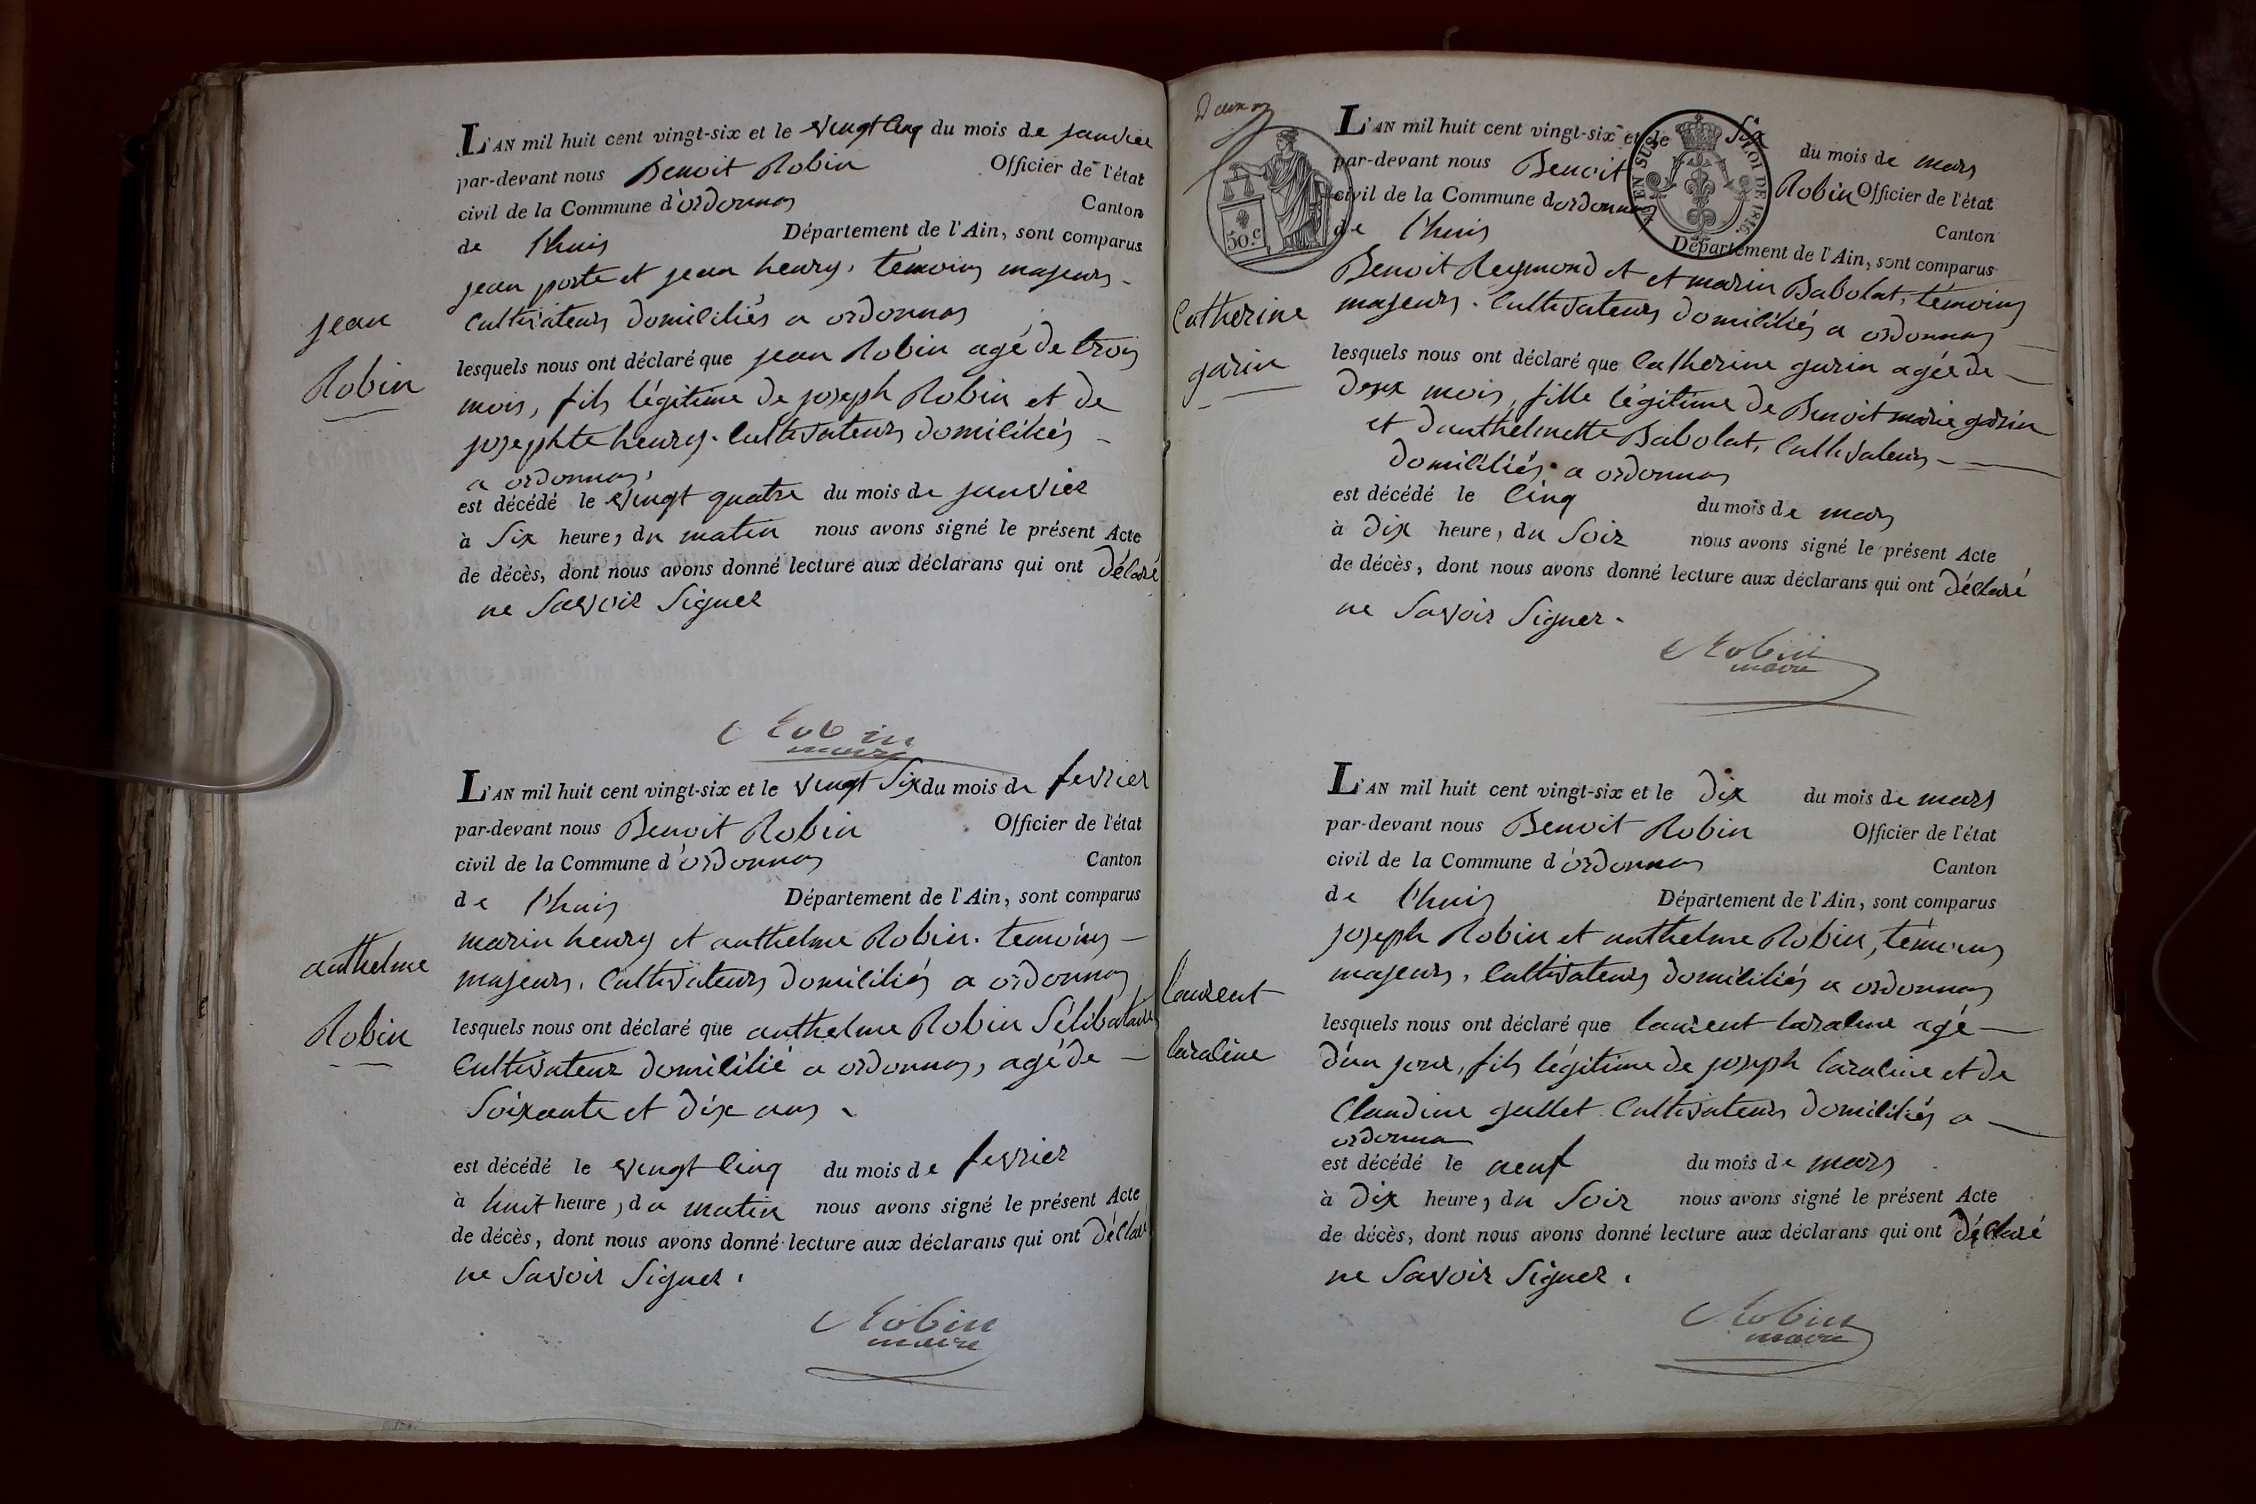 L'AN mil huit cent vingt-six et le vingt cinq du mois de janvier
par-devant nous Benoit Robin Officier de l'état
civil de la Commune d'ordonnas Canton
de l'huis Département de l'Ain, sont comparus
jean porte et jean henry, témoins majeurs
cultivateurs domiciliés a ordonnas
jean
Robin
lesquels nous ont déclaré que jean Robin agé de trois
mois, fils légitime de joseph Robin et de
josephte henry. cultivateurs domiciliés
a ordonnas,
est décédé le vingt quatre du mois de janvier
à six heure, du matin nous avons signé le présent Acte
de décès, dont nous avons donné lecture aux déclarans qui ont déclaré
ne savoir signer
Robin
maire
L'AN mil huit cent vingt-six et le vingt six du mois de fevrier
par-devant nous Benoit Robin Officier de l'état
civil de la Commune d'ordonnas Canton
de l'huis Département de l'Ain, sont comparus
marin henry et anthelme Robin. temoins
majeurs. cultivateurs domiciliés a ordonnas
anthelme
Robin
lesquels nous ont déclaré que anthelme Robin Sélibataire
cultivateur domicilié a ordonnas, agé de
soixante et dix ans
est décédé le vingt cinq du mois de fevrier
à huit heure, du matin nous avons signé le présent Acte
de décès, dont nous avons donné lecture aux déclarans qui ont déclaré
ne savoir signer.
Robin
maire
50.c
EN SUS
LOI DE 1816
L'AN mil huit cent vingt-six et le six du mois de mars
par-devant nous Benoit Robin Officier de l'état
civil de la Commune dordonnas Canton
de l'huis Département de l'Ain, sont comparus
Benoit Reymond et et marin Babolat, témoins
majeurs. cultivateurs domiciliés a ordonnas
catherine
garin
lesquels nous ont déclaré que catherine garin agée de
deux mois, fille légitime de Benoit marie garin
et d'anthelmette Babolat, cultivateurs
domiciliés a ordonnas
est décédé le cinq du mois de mars
à dix heure, du soir nous avons signé le présent Acte
de décès, dont nous avons donné lecture aux déclarans qui ont déclaré
ne savoir signer.
Robin
maire
L'AN mil huit cent vingt-six et le dix du mois de mars
par-devant nous Benoit Robin Officier de l'état
civil de la Commune d'ordonnas Canton
de l'huis Département de l'Ain, sont comparus
joseph Robin et anthelme Robin, témoins
majeurs, cultivateurs domiciliés a ordonnas
laurent
caraline
lesquels nous ont déclaré que laurent caraline agé
d'un jour, fils légitime de joseph caraline et de
Claudine gullet cultivateurs domiciliés a
ordonnas
est décédé le neuf du mois de mars
à dix heure, du soir nous avons signé le présent Acte
de décès, dont nous avons donné lecture aux déclarans qui ont déclaré
ne savoir signer.
Robin
maire